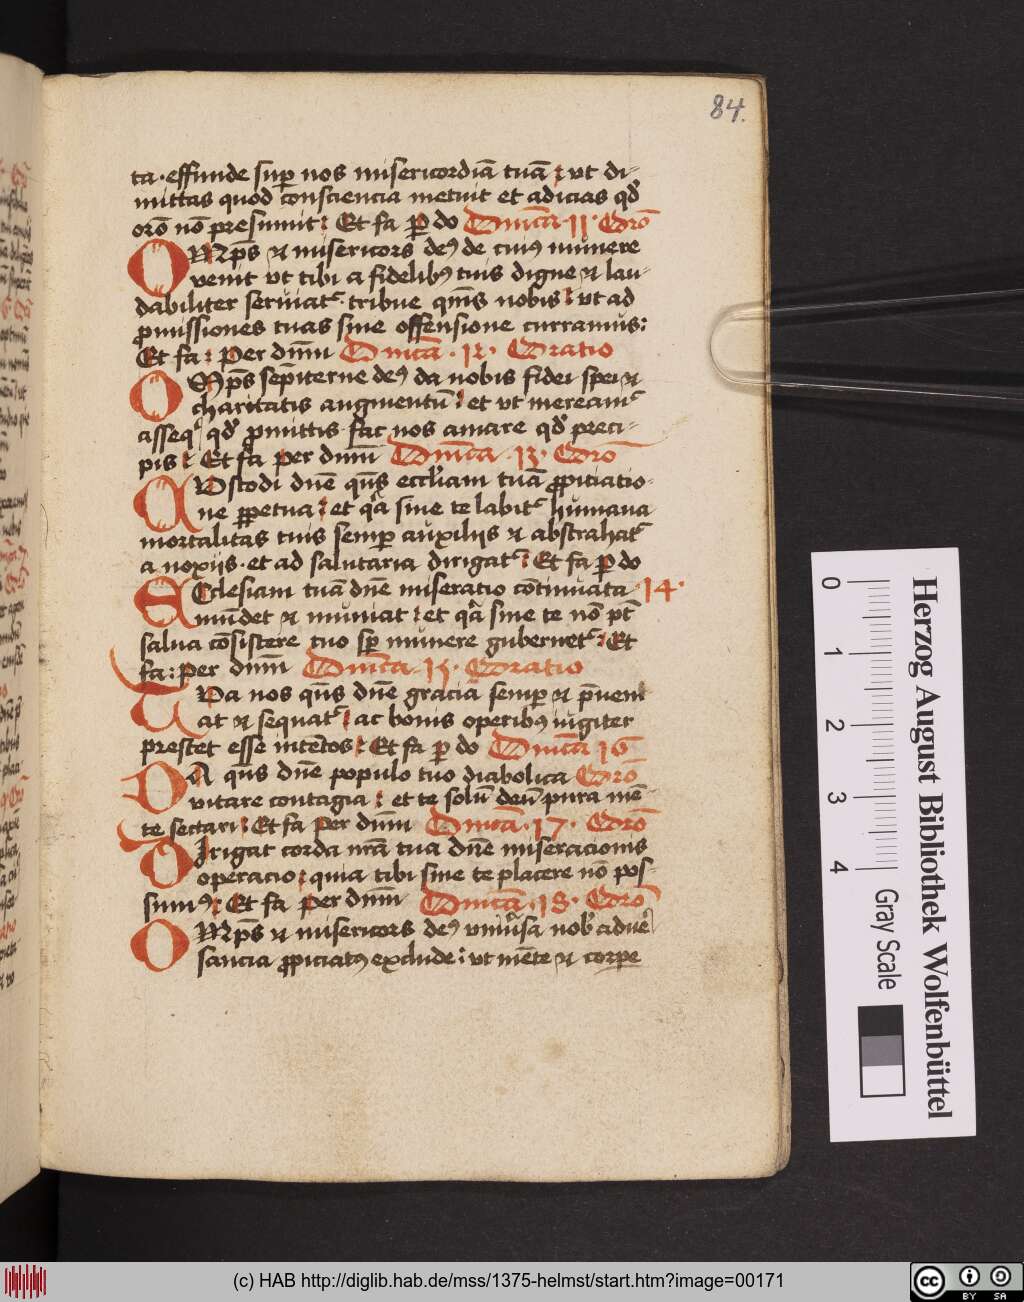 84.
ta· effunde sup̄ nos misericordiā tuā ⁝ ut di-
mittas quod consciencia metuit et adicias qd̓
orō nō presumit ⁝ Et fa ꝑ do Dn̄ica· 11· Orō
OMp̄s ⁊ misericors deꝰ de cuiꝰ munere
venit ut tibi a fidelibꝰ tuis digne ⁊ lau-
dabiliter seruiat᷑· tribue qm̄s nobis ⁝ ut ad
promissiones tuas sine offensione curramus ⁝
Et fa ⁝ Per dn̄m Dn̄ica· 12· Oratio
OMp̄s sep̄iterne deꝰ da nobis fidei spei ⁊
charitatis augmentū ⁝ et ut meream᷑
asseqͥ qd̓ promittis· fac nos amare qd̓ preci-
pis ⁝ Et fa per dn̄m Dn̄ica· 13· Orō
CVstodi dn̄e qm̄s eccl̓iam tuā ꝓpiciatio-
ne ꝑpetua ⁝ et qͣ sine te labit᷑ humana
mortalitas tuis semꝑ auxiliis ⁊ abstrahat᷑
a noxiis· et ad salutaria dirigat᷑ ⁝ Et fa ꝑ do
ECclesiam tuā dn̄e miseratio cōtinuata ·14·
mūdet ⁊ muniat ⁝ et qͣ sine te nō pt̄
salua cōsistere tuo sꝑ munere gubernet᷑ ⁝ Et
fa ⁝ Per dn̄m Dn̄ica· 15· Oratio
TVa nos qm̄s dn̄e gracia semꝑ ⁊ p̄ueni
at ⁊ sequat᷑ ⁝ ac bonis operibꝰ iugiter
prestet esse intētos ⁝ Et fa ꝑ do Dn̄ica 16
DA qm̄s dn̄e populo tuo diabolica Orō
vitare contagia ⁝ et te solū deū pura mē-
te sectari ⁝ Et fa per dn̄m Dn̄ica· 17· Orō
DIrigat corda nr̄a tua dn̄e miseracionis
operacio ⁝ quia tibi sine te placere nō pos-
sumꝰ ⁝ Et fa Per dn̄m Dn̄ica· 18· Orō
OMp̄s ⁊ misericors deꝰ vniu̓sa nob̓ aduer
sancia ꝓpiciatꝰ exclude ⁝ ut mēte ⁊ corꝑe
0 1 2 3 4
Gray Scale
Herzog August Bibliothek Wolfenbüttel
(c) HAB http://diglib.hab.de/mss/1375-helmst/start.htm?image=00171
cc BY SA